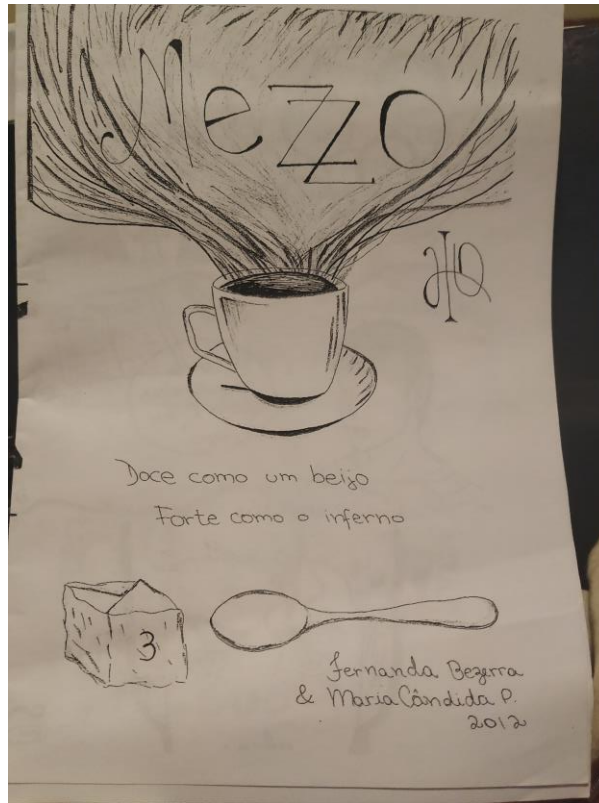 Mezzo
HQ
Doce como um beijo
Forte como o inferno
3
Fernanda Bezerra
& Maria Cândida P.
2012